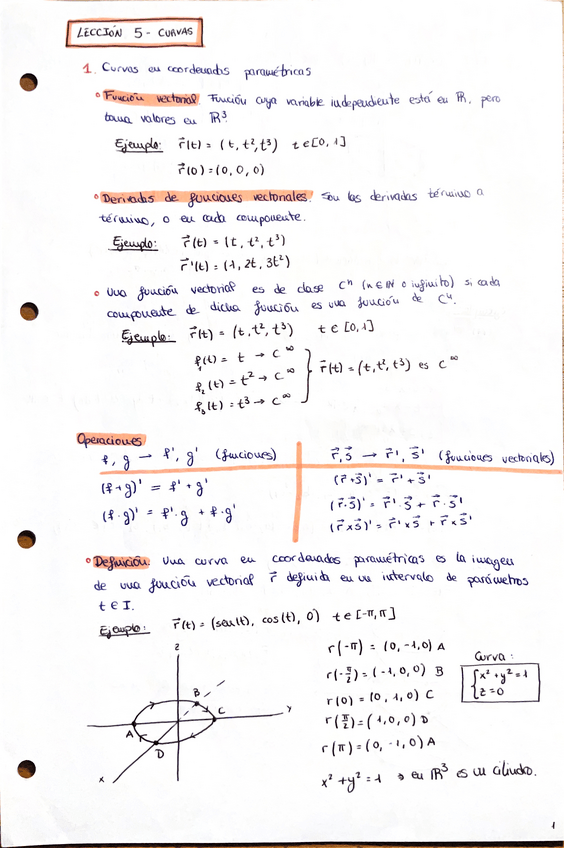 LECCIÓN 5 - CURVAS
1. Curvas en coordenadas paramétricas
° Función vectorial. Función cuya variable independiente está en ℝ, pero
toma valores en ℝ³.
Ejemplo: r⃗(t) = (t, t², t³) t ∈ [0, 1]
r⃗(0) = (0, 0, 0)
° Derivadas de funciones vectoriales. Son las derivadas término a
término, o en cada componente.
Ejemplo: r⃗(t) = (t, t², t³)
r⃗'(t) = (1, 2t, 3t²)
° Una función vectorial es de clase Cⁿ (n ∈ ℕ o infinito) si cada
componente de dicha función es una función de Cⁿ.
Ejemplo: r⃗(t) = (t, t², t³) t ∈ [0, 1]
f₁(t) = t → C^∞
f₂(t) = t² → C^∞
f₃(t) = t³ → C^∞
r⃗(t) = (t, t², t³) es C^∞
Operaciones
f, g → f', g' (funciones)
(f+g)' = f' + g'
(f·g)' = f'·g + f·g'
r⃗, s⃗ → r⃗', s⃗' (funciones vectoriales)
(r⃗+s⃗)' = r⃗' + s⃗'
(r⃗·s⃗)' = r⃗'·s⃗ + r⃗·s⃗'
(r⃗×s⃗)' = r⃗'×s⃗ + r⃗×s⃗'
° Definición. Una curva en coordenadas paramétricas es la imagen
de una función vectorial r⃗ definida en un intervalo de parámetros
t ∈ I.
Ejemplo: r⃗(t) = (sen(t), cos(t), 0) t ∈ [-π, π]
z
y
x
A
B
C
D
r(-π) = (0, -1, 0) A
r(-π/2) = (-1, 0, 0) B
r(0) = (0, 1, 0) C
r(π/2) = (1, 0, 0) D
r(π) = (0, -1, 0) A
x² + y² = 1 → en ℝ³ es un cilindro.
Curva:
{x² + y² = 1
z = 0
1